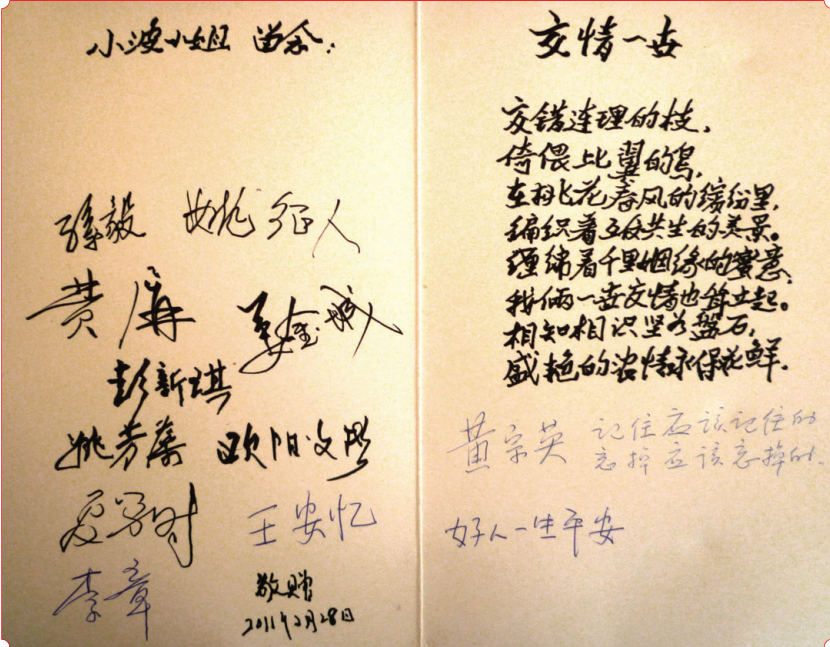 小波小姐 留念：
孫毅 姚征人
黄屏 姜金城
彭新琪
姚芳藻 欧阳文彬
王安忆
李章
敬赠
2011年2月28日
交情一世
交错连理的枝，
倚偎比翼的鸟，
在扬飞花春风的缤纷里，
编织着互为共生的美景。
缠绵着千里姻缘的蜜意，
我俩一世交情也耸立起。
相知相识坚为盘石，
盛艳的浓情永保花鲜。
黄宗英 记住应该记住的
忘掉应该忘掉的.
好人一生平安